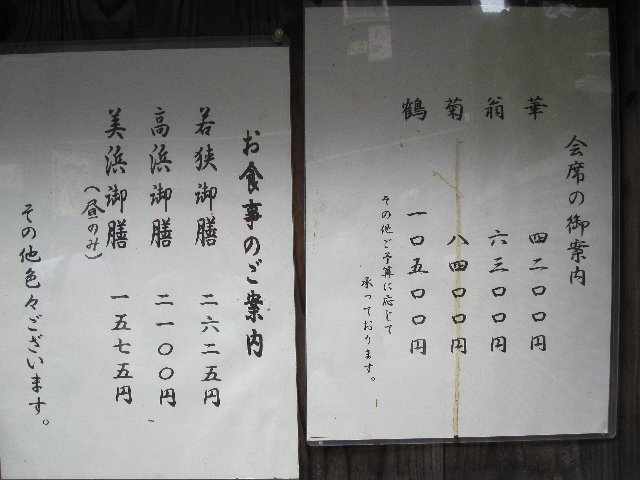 会席の御案内
華 四二〇〇円
翁 六三〇〇円
菊 八四〇〇円
鶴 一〇五〇〇円
その他ご予算に応じて
承っております。
お食事のご案内
若狭御膳 二六二五円
高浜御膳 二一〇〇円
美浜御膳 一五七五円
(昼のみ)
その他色々ございます。